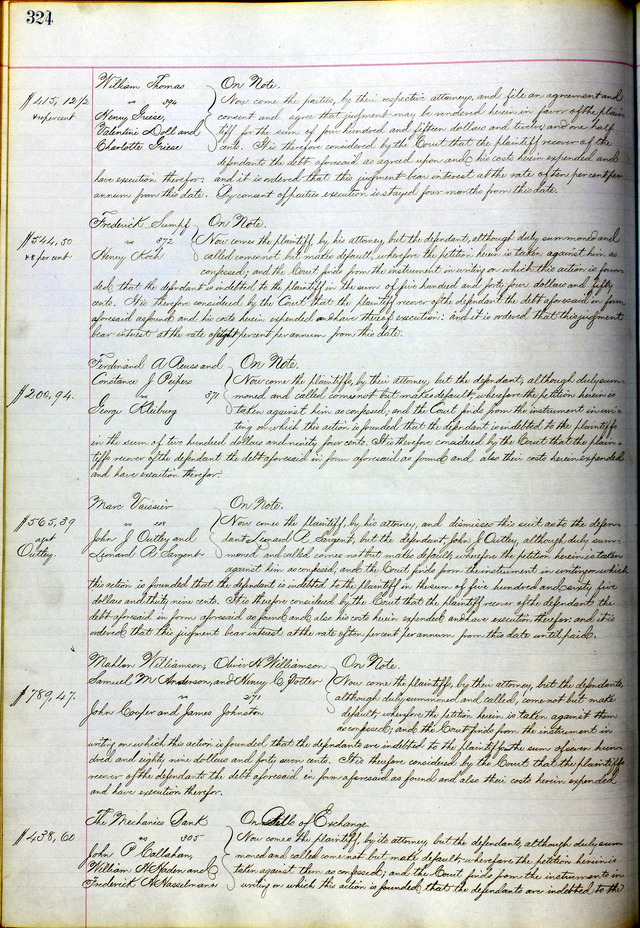 324
William Thomas On Note.
$415,12½ vs 394 Now come the parties, by their respective attorneys, and file an agreement and
Henry Griese, consent and agree that judgment may be rendered herein in favor of the plain
Valentine Doll and tiff for the sum of four hundred and fifteen dollars and twelve and one half
Charlotte Griese cents. It is therefore considered by the Court that the plaintiff recover of the
defendants the debt aforesaid as agreed upon and his costs herein expended and
have execution therefor. and it is ordered that this judgment bear interest at the rate of ten percent per
annum from this date. By consent of parties execution is stayed four months from this date.
Frederick Sumpf On Note.
$544,50 vs 372 Now comes the plaintiff, by his attorney, but the defendant, although duly summoned and
+8 percent Henry Koch called comes not but makes default, wherefore the petition herein is taken against him as
confessed; and the Court finds from the instrument in writing on which this action is foun
ded, that the defendant is indebted to the plaintiff in the sum of five hundred and forty four dollars and fifty
cents. It is therefore considered by the Court that the plaintiff recover of the defendant the debt aforesaid in form
aforesaid as found and his costs herein expended and have thereof execution: and it is ordered that this judgment
bear interest at the rate of eight percent per annum from this date.
Ferdinand A Reuss and On Note.
Constance J Peipers Now come the plaintiffs, by their attorney, but the defendant, although duly sum
$200,94. vs 371 moned and called comes not but makes default, wherefore the petition herein is
George Kleiburg taken against him as confessed; and the Court finds from the instrument in wri
ting on which this action is founded that the defendant is indebted to the plaintiffs
in the sum of two hundred dollars and ninety four cents. It is therefore considered by the Court that the plain
tiffs recover of the defendant the debt aforesaid in form aforesaid as found and also their costs herein expended
and have execution therefor.
Marc Vaissier On Note.
$565,39 vs Now comes the plaintiff, by his attorney, and dismisses this suit as to the defen
agst John J Outley and dant Leonard R. Sergent, but the defendant, John J Outley, although duly sum
Outley. Leonard R Sergent moned and called comes not but makes default, wherefore the petition herein is taken
against him as confessed; and the Court finds from the instrument in writing on which
this action is founded that the defendant is indebted to the plaintiff in the sum of five hundred and sixty five
dollars and thirty nine cents. It is therefore considered by the Court that the plaintiff recover of the defendant the
debt aforesaid in form aforesaid as found and also his costs herein expended and have execution therefor: and it is
ordered that this judgment bear interest at the rate of ten percent per annum from this date until paid.
Mahlon Williamson, Oliver H Williamson On Note.
Samuel M Anderson, and Henry C Potter Now come the plaintiffs, by their attorney, but the defendants,
$789,47. vs 271 although duly summoned and called, come not but make
John Cooper and James Johnston default, wherefore the petition herein is taken against them
as confessed; and the Court finds from the instrument in
writing on which this action is founded, that the defendants are indebted to the plaintiffs in the sum of seven hun
dred and eighty nine dollars and forty seven cents. It is therefore considered by the Court that the plaintiffs
recover of the defendants the debt aforesaid in form aforesaid as found and also their costs herein expended
and have execution therefor.
The Mechanics Bank On Bill of Exchange.
$438,60 vs 305 Now comes the plaintiff, by its attorney, but the defendants, although duly sum
John P Callahan, moned and called come not but make default, wherefore the petition herein is
William H Haden and taken against them as confessed; and the Court finds from the instruments in
Frederick H Hasselmann writing on which this action is founded, that the defendants are indebted to the